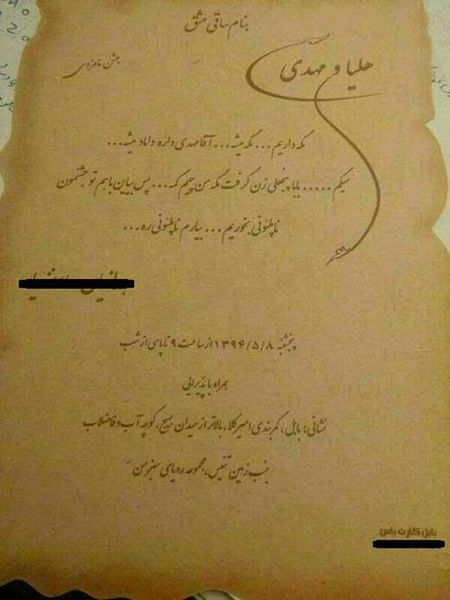 بنام ساقی عشق
هلیا و مهدی
جشن نامزدی
مگه داریم ... مگه میشه ... آقا مهدی داره داماد میشه ...
میگم ..... بابا پنجعلی زن گرفت مگه من چیم کمه ... پس بیاین باهم تو جشنمون
ناپلئونی بخوریم ... بیارم ناپلئونی ره ...
پنجشنبه ۱۳۹۴/۵/۸ از ساعت ۹ تا پاسی از شب
همراه با پذیرایی
نشانی: بابل، کمربندی امیرکلا، بالاتر از میدان بسیج، کوچه آب و فاضلاب
جنب زمین تنیس، مجموعه رویای سبز من
بابل کارت یاس